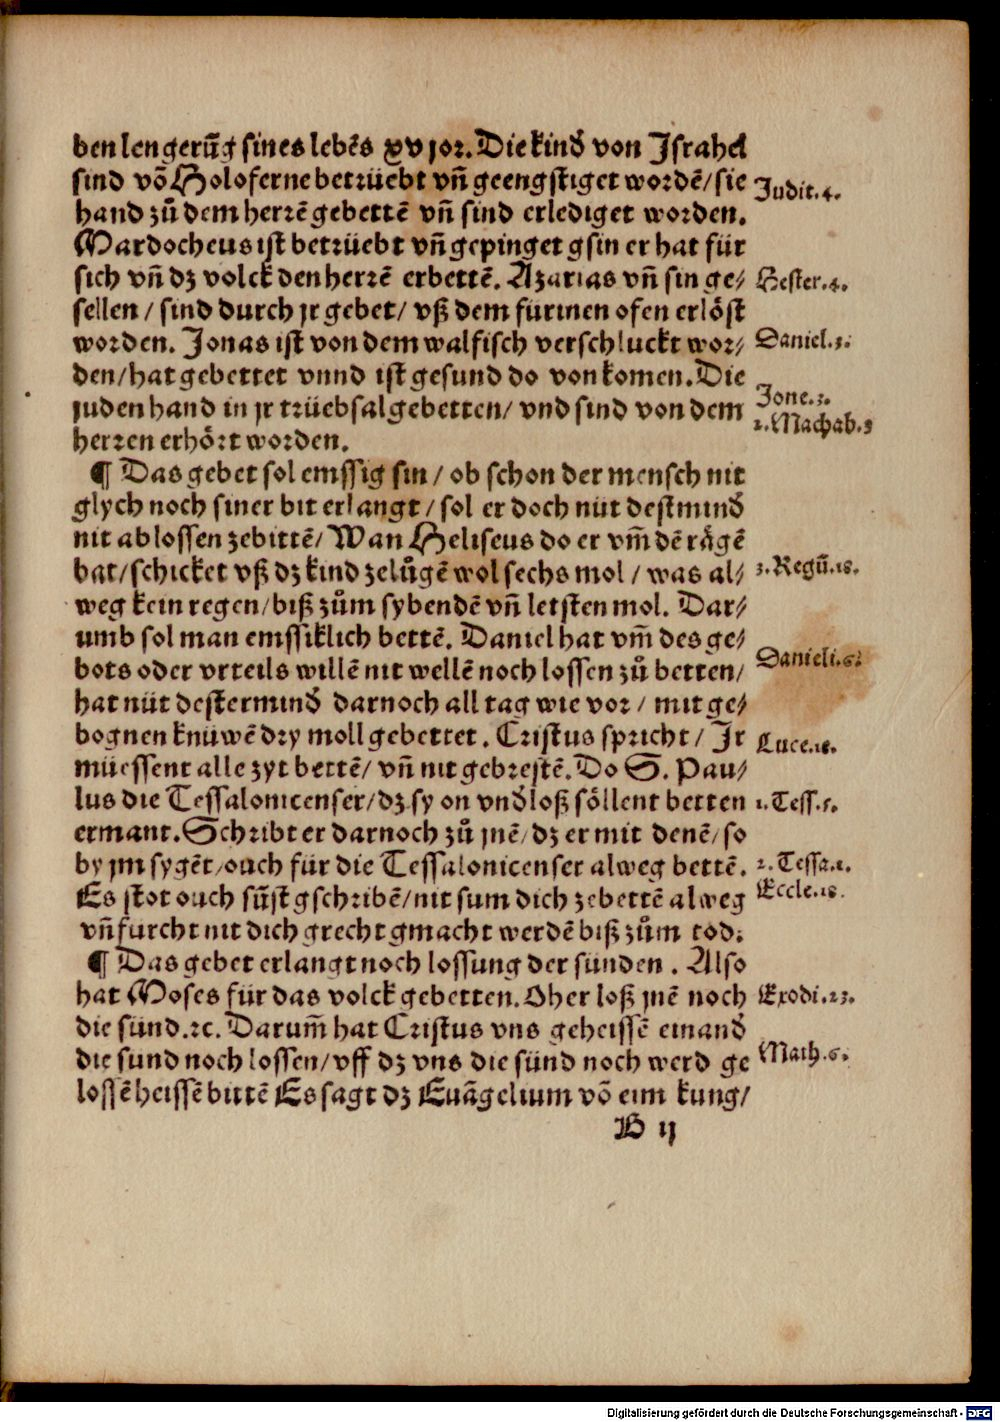 ben lengerūg sines lebēs xv jor. Die kind von Israhel
sind võ Holoferne betrüebt vñ geengstiget wordē/ sie
hand zů dem herrē gebettē vñ sind erlediget worden.
Mardocheus ist betrüebt vñ gepinget gsin er hat für
sich vñ dz volck den herrē erbettē. Azarias vñ sin ge⸗
sellen / sind durch jr gebet/ vß dem fürinen ofen erlöst
worden. Jonas ist von dem walfisch verschluckt wor⸗
den/ hat gebettet vnnd ist gesund do von komen. Die
juden hand in jr trüebsal gebetten/ vnd sind von dem
herren erhört worden.
¶ Das gebet sol emssig sin / ob schon der mensch nit
glych noch siner bit erlangt / sol er doch nüt destmind
nit ablossen zebittē/ Wan Heliseus do er vm̄ dē rägē
bat/ schicket vß dz kind zelůgē wol sechs mol / was al⸗
weg kein regen/ biß zům sybendē vñ letsten mol. Dar⸗
umb sol man emssiklich bettē. Daniel hat vm̄ des ge⸗
bots oder vrteils willē nit wellē noch lossen zů betten/
hat nüt destermind darnoch all tag wie vor / mit ge⸗
bognen knüwē dry moll gebettet. Cristus spricht/ Ir
müessent alle zyt bettē/ vñ nit gebrestē. Do S. Pau⸗
lus die Tessalonicenser/ dz sy on vndloß söllent betten
ermant. Schribt er darnoch zů jnē/ dz er mit denē/ so
by jm sygēt/ ouch für die Tessalonicenser alweg bettē.
Es stot ouch sūst gschribē/ nit sum dich zebettē alweg
vñ furcht nit dich grecht gmacht werdē biß zům tod.
¶ Das gebet erlangt noch lossung der sünden. Also
hat Moses für das volck gebetten. O her loß jnē noch
die sünd. ꝛc. Darum̄ hat Cristus vns geheissē einand
die sund noch lossen/ vff dz vns die sünd noch werd ge
lossē heissē bittē Es sagt dz Euāgelium võ eim kung/
B ij
Judit. 4.
Hester. 4.
Daniel. 3.
Jone. 2.
2. Machab. 3
3. Regū. 18.
Danieli. 6.
Luce. 18.
1. Tess. 5.
2. Tessa. 1.
Eccle. 18.
Exodi. 23.
Math. 6.
Digitalisierung gefördert durch die Deutsche Forschungsgemeinschaft - DFG